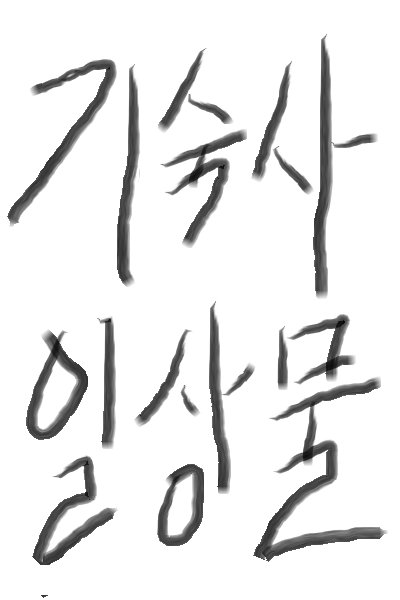 기숙사
일상물